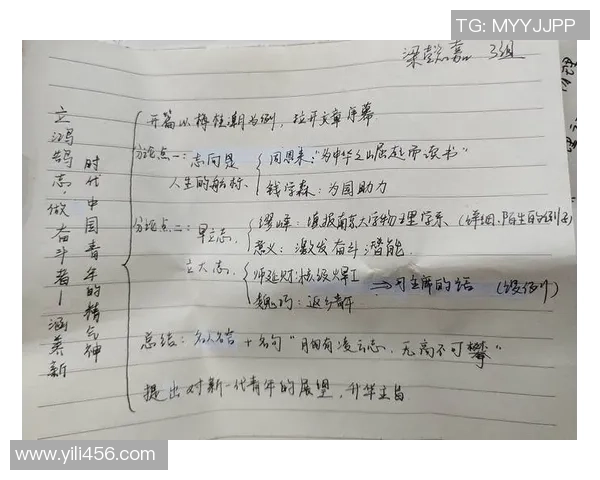 TG: MYYJJPP
梁懿嘉 3组
立鸿鹄志·做奋斗者—涵养新
时代中国青年的精气神
开篇以梅桂潮为例，拉开文章序幕
分论点一：志向是
人生的航标。
周恩来："为中华之崛起而读书"
钱学森：为国助力
分论点二：早立志，
缪峰：填报南京大学物理学系（详细、陌生的例子）
意义：激发奋斗潜能。
立大志
师延财：特级焊工
⇒习主席的话 （缓例）
魏巧：返乡青年
总结：名人名言+名句"自有凌云志，无高不可攀"
提出对新一代青年的展望，升华主旨
www.yili456.com